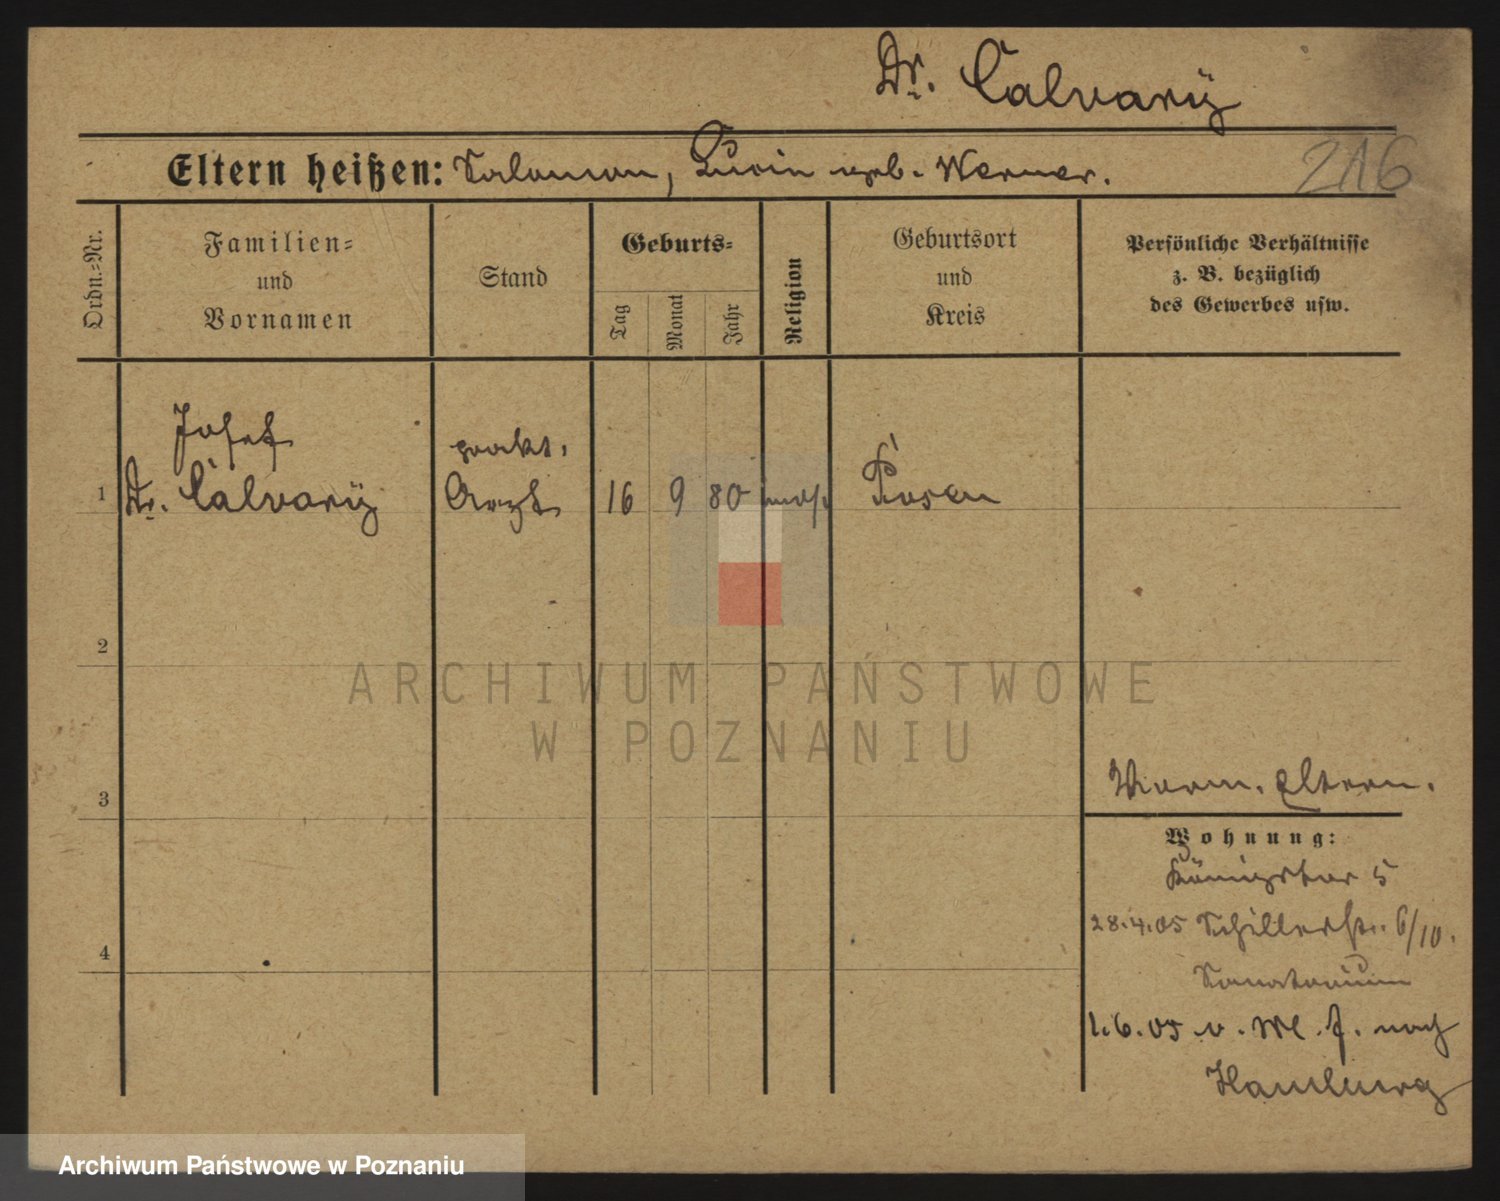 Dr. Calvarÿ
Eltern heißen: Salomon, geb. Werner.
216
Ordn.=Nr.
Familien=
und
Vornamen
Stand
Geburts=
Tag
Monat
Jahr
Religion
Geburtsort
und
Kreis
Persönliche Verhältnisse
z. B. bezüglich
des Gewerbes usw.
Josef
1 Dr. Calvarÿ
prakt.
Arzt
16 9 80 mos.
Posen
2
3
4
Eltern.
Wohnung:
Königstor 5
28.4.05 Schillerstr. 6/10.
Sanatorium
1.6.05 v. nach
Hamburg
ARCHIWUM PAŃSTWOWE
W POZNANIU
Archiwum Państwowe w Poznaniu